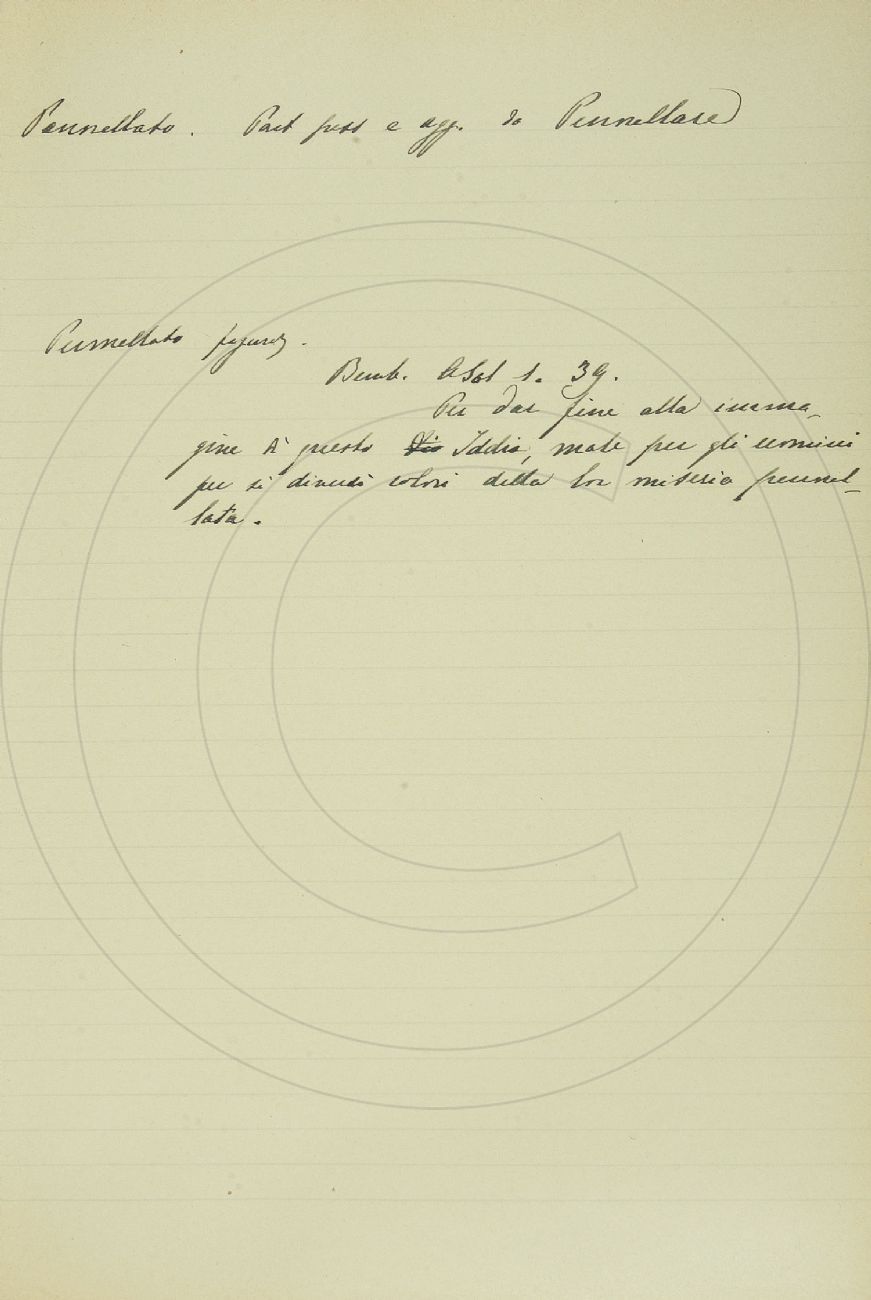 Pennellato. Part pass e agg. da Pennellare
Pennellato figurat.
Bemb. Asol 1. 39.
Per dar fine alla imma-
gine di questo Dio Iddio, male per gli uomini
per sì diversi colori della lor miseria pennel-
lata.